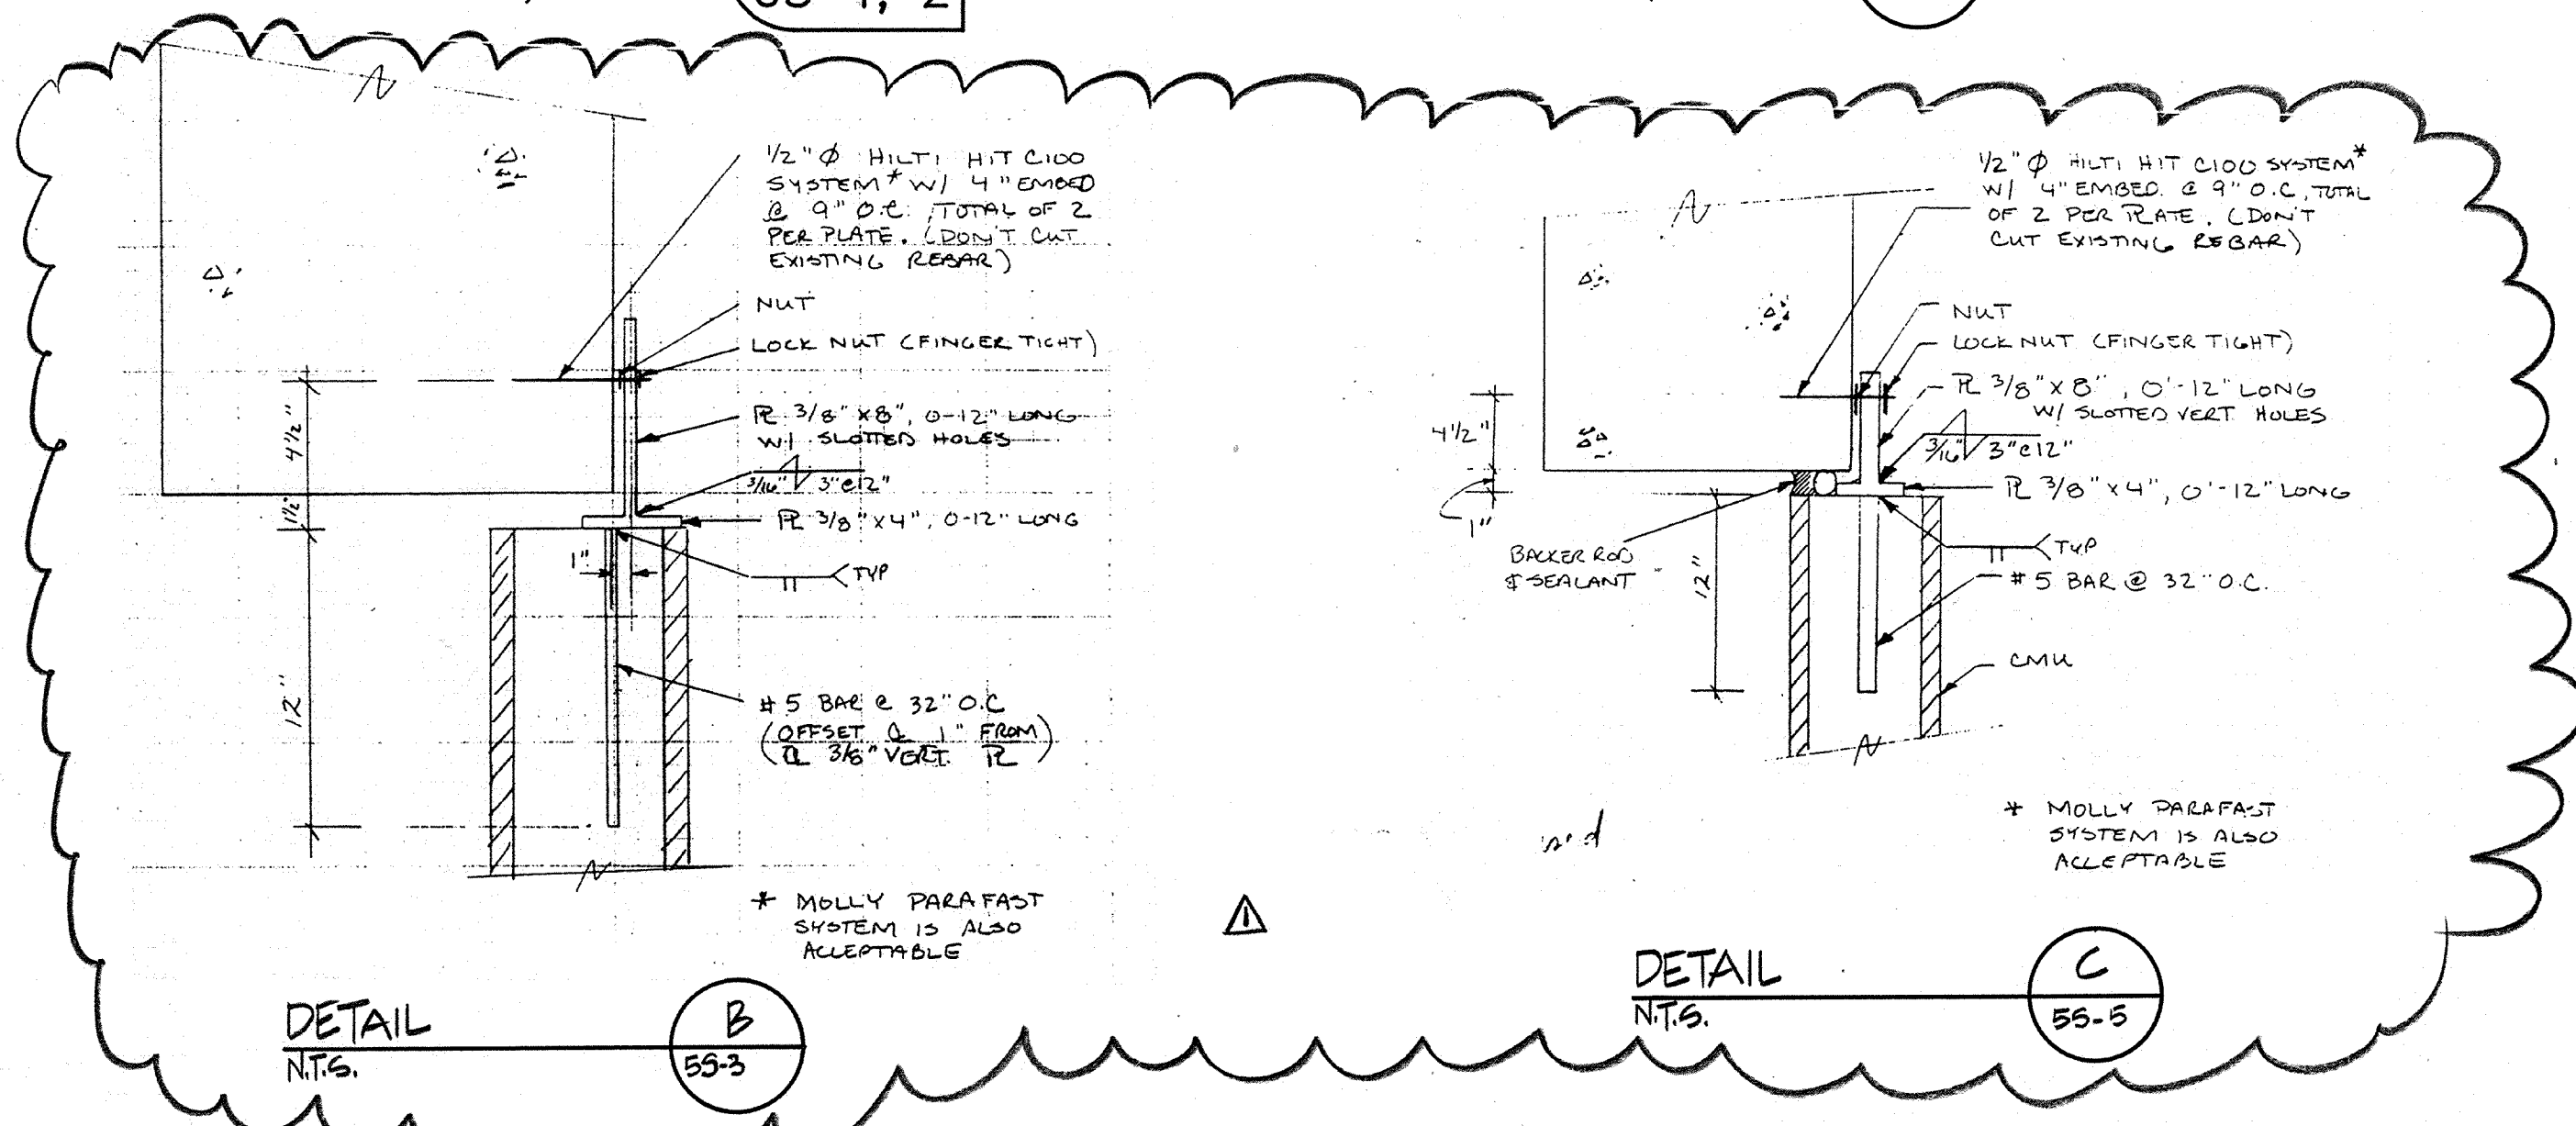 1/2"Ø HILTI HIT C100
SYSTEM* W/ 4" EMBED
@ 9" O.C., TOTAL OF 2
PER PLATE. (DON'T CUT
EXISTING REBAR)
NUT
LOCK NUT (FINGER TIGHT)
PL 3/8" X 8", 0-12" LONG
W/ SLOTTED HOLES
3/16" 3"@12"
PL 3/8" X 4", 0-12" LONG
TYP
#5 BAR @ 32" O.C
(OFFSET CL 1" FROM
CL 3/8" VERT. PL)
4 1/2"
1 1/2"
12"
1"
* MOLLY PARAFAST
SYSTEM IS ALSO
ACCEPTABLE
DETAIL
N.T.S.
B
5S-3
1
1/2"Ø HILTI HIT C100 SYSTEM*
W/ 4" EMBED. @ 9" O.C, TOTAL
OF 2 PER PLATE. (DON'T
CUT EXISTING REBAR)
NUT
LOCK NUT (FINGER TIGHT)
PL 3/8" X 8", 0'-12" LONG
W/ SLOTTED VERT. HOLES
3/16 3"@12"
PL 3/8" X 4", 0'-12" LONG
TYP
#5 BAR @ 32" O.C.
CMU
4 1/2"
1"
BACKER ROD
& SEALANT
12"
* MOLLY PARAFAST
SYSTEM IS ALSO
ACCEPTABLE
DETAIL
N.T.S.
C
5S-5